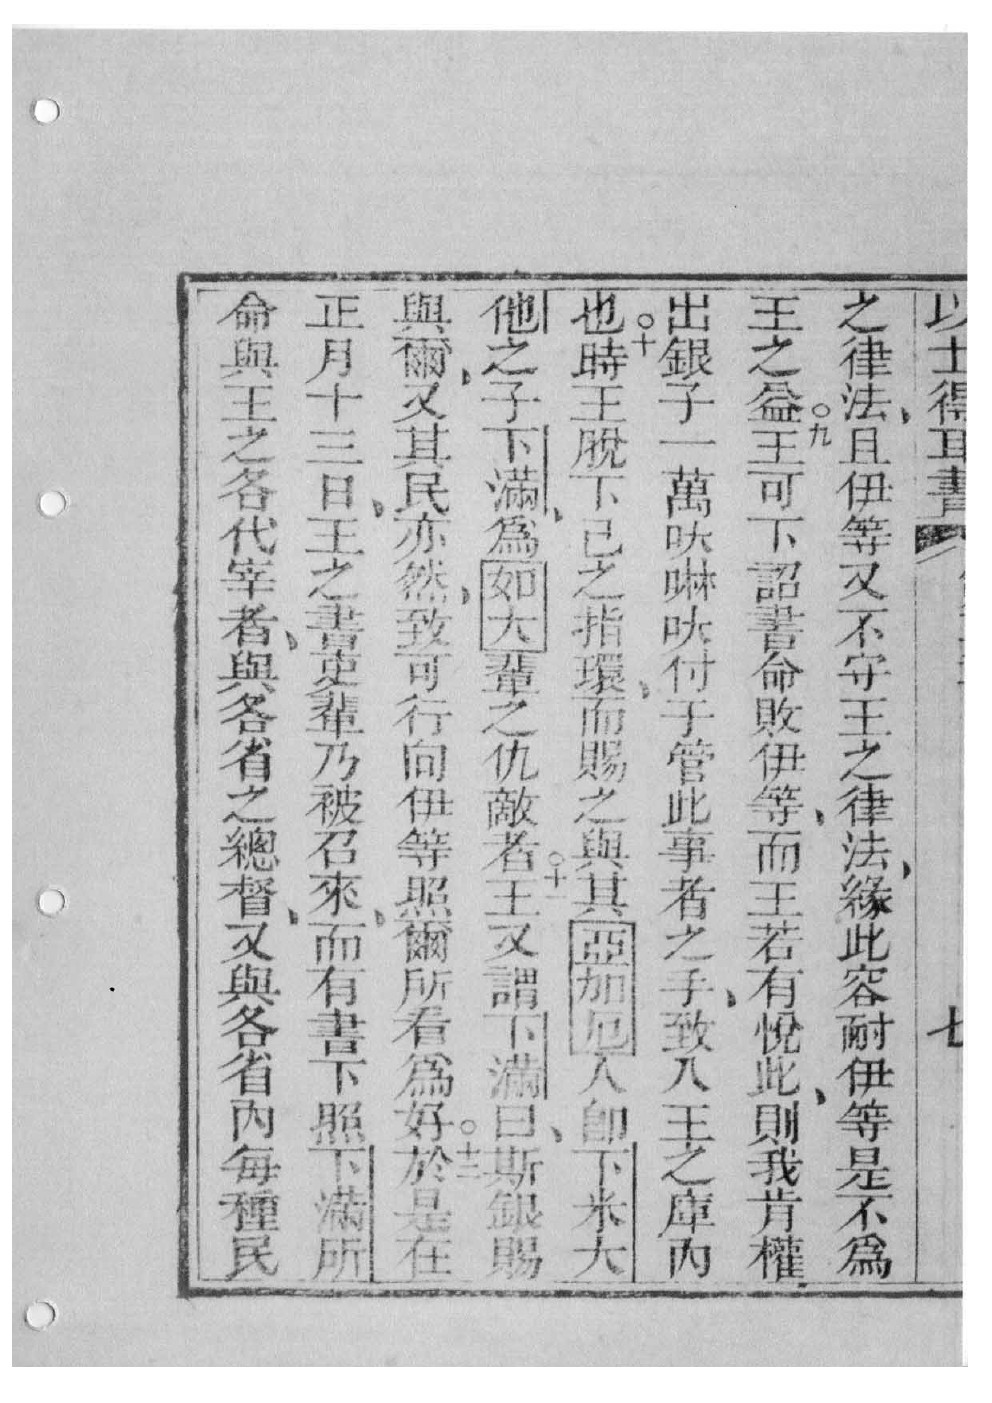 以士得耳書 七
之律法、且伊等又不守王之律法、緣此容耐伊等是不爲
王之益○九王可下詔書命敗伊等、而王若有悅此、則我肯權
出銀子一萬呔啉呔付于管此事者之手、致入王之庫內
也○十時王脫下己之指環、而賜之與其亞加厄人卽下米大
他之子下滿、爲如大輩之仇敵者○十一王又謂下滿曰、斯銀賜
與爾、又其民亦然、致可行向伊等照爾所看爲好○十二於是在
正月十三日、王之書吏輩乃被召來、而有書下照下滿所
命與王之各代宰者、與各省之總督、又與各省內每種民